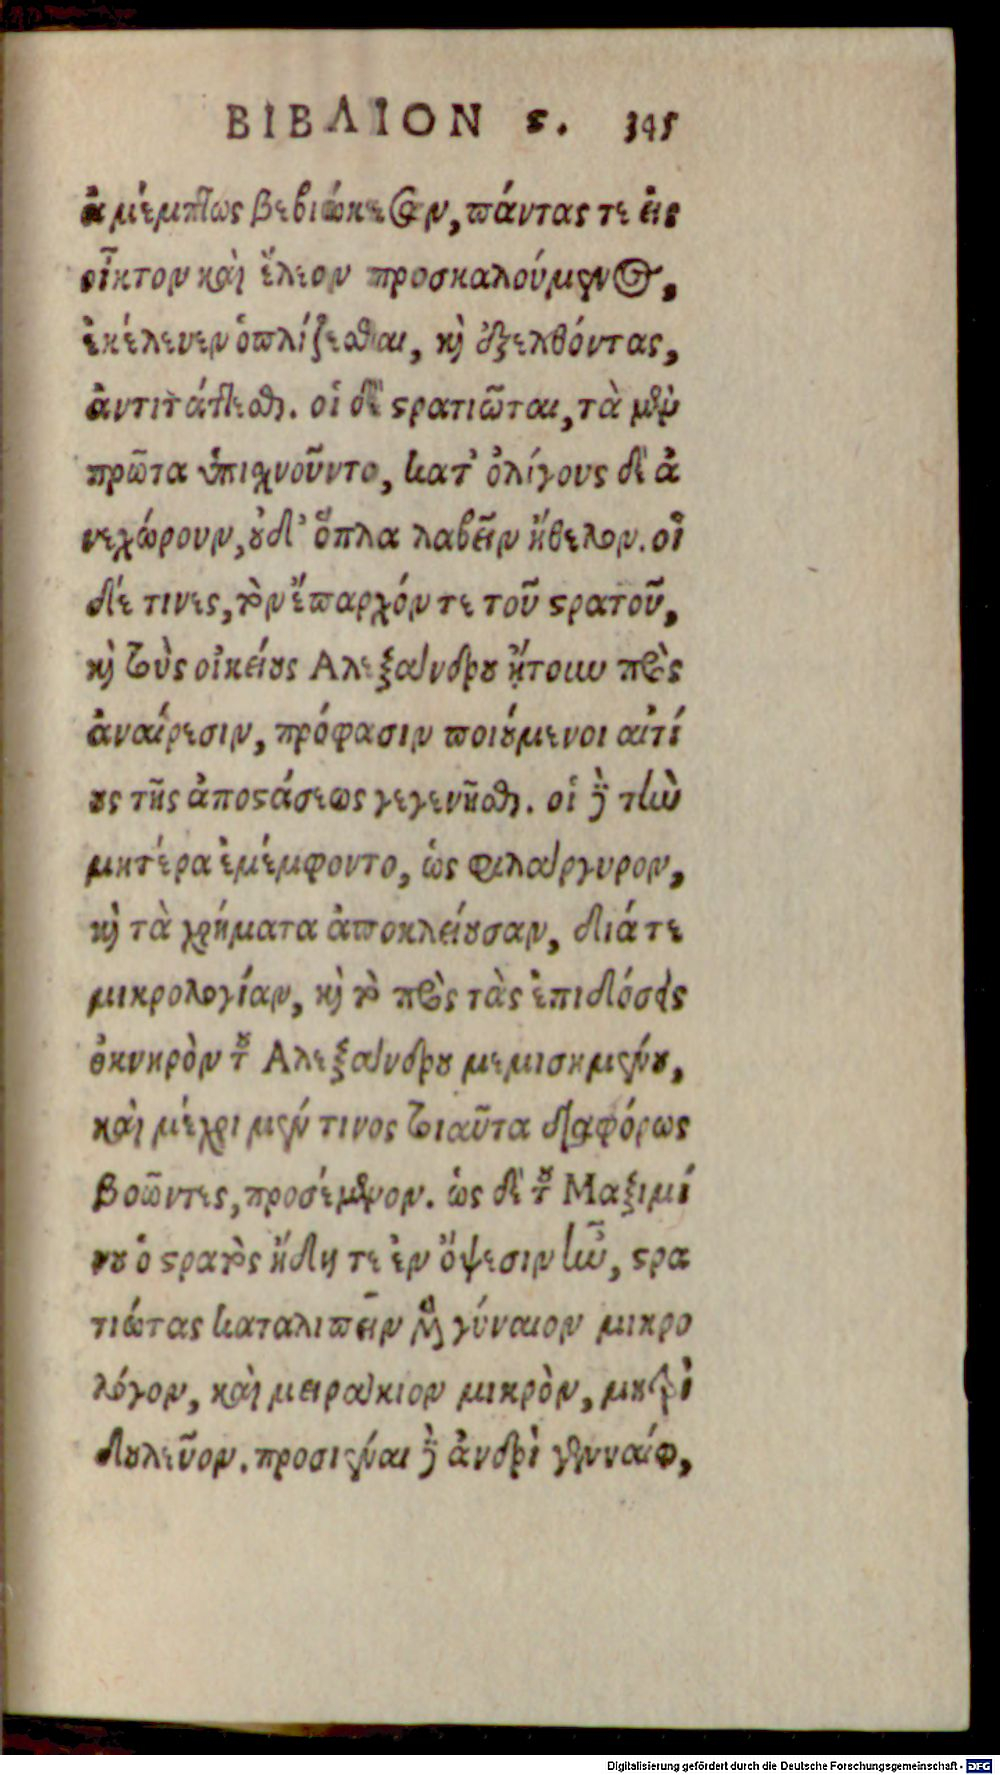 ΒΙΒΛΙΟΝ ϛ. 345
ἀμέμπτως βεβιώκεσαν, πάντας τε εἰς
οἶκτον καὶ ἔλεον προσκαλούμενος,
ἐκέλευεν ὁπλίζεσθαι, καὶ ἐξελθόντας,
ἀντιτάττεσθαι. οἱ δὲ στρατιῶται, τὰ μὲν
πρῶτα ὑπισχνοῦντο, κατ' ὀλίγους δὲ ἀ
νεχώρουν, οὐδ' ὅπλα λαβεῖν ἤθελον. οἱ
δέ τινες, τὸν ἔπαρχόν τε τοῦ στρατοῦ,
καὶ τοὺς οἰκείους Αλεξάνδρου ᾔτουν πρὸς
ἀναίρεσιν, πρόφασιν ποιούμενοι αἰτί
ους τῆς ἀποστάσεως γεγενῆσθαι. οἱ δὲ τὴν
μητέρα ἐμέμφοντο, ὡς φιλάργυρον,
καὶ τὰ χρήματα ἀποκλείουσαν, διά τε
μικρολογίαν, καὶ τὸ πρὸς τὰς ἐπιδόσεις
ὀκνηρὸν τοῦ Αλεξάνδρου μεμισημένου,
καὶ μέχρι μέν τινος τοιαῦτα διαφόρως
βοῶντες, προσέμενον. ὡς δὲ τοῦ Μαξιμί
νου ὁ στρατὸς ἤδη τε ἐν ὄψεσιν ἦν, στρα
τιώτας καταλιπεῖν μὲν γύναιον μικρο
λόγον, καὶ μειράκιον μικρὸν, μητρὶ
δουλεῦον. προσιέναι δὲ ἀνδρὶ γενναίῳ,
Digitalisierung gefördert durch die Deutsche Forschungsgemeinschaft - DFG